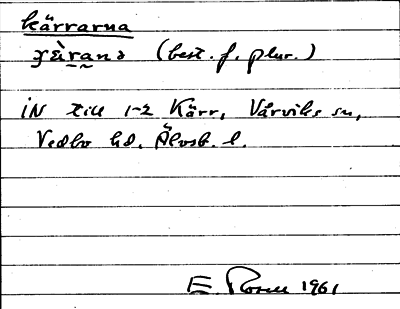 kärrarna
(best. f. plur.)
IN till 1-2 Kärr, Vårviks sn,
Vedbo hd. Älvsb. l.
E. Rosell 1961